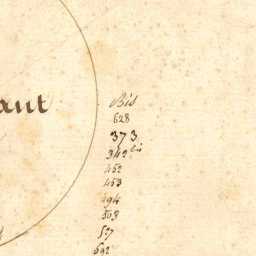 aut
Bis
628
373
349 bis
452
453
494
508
527
592